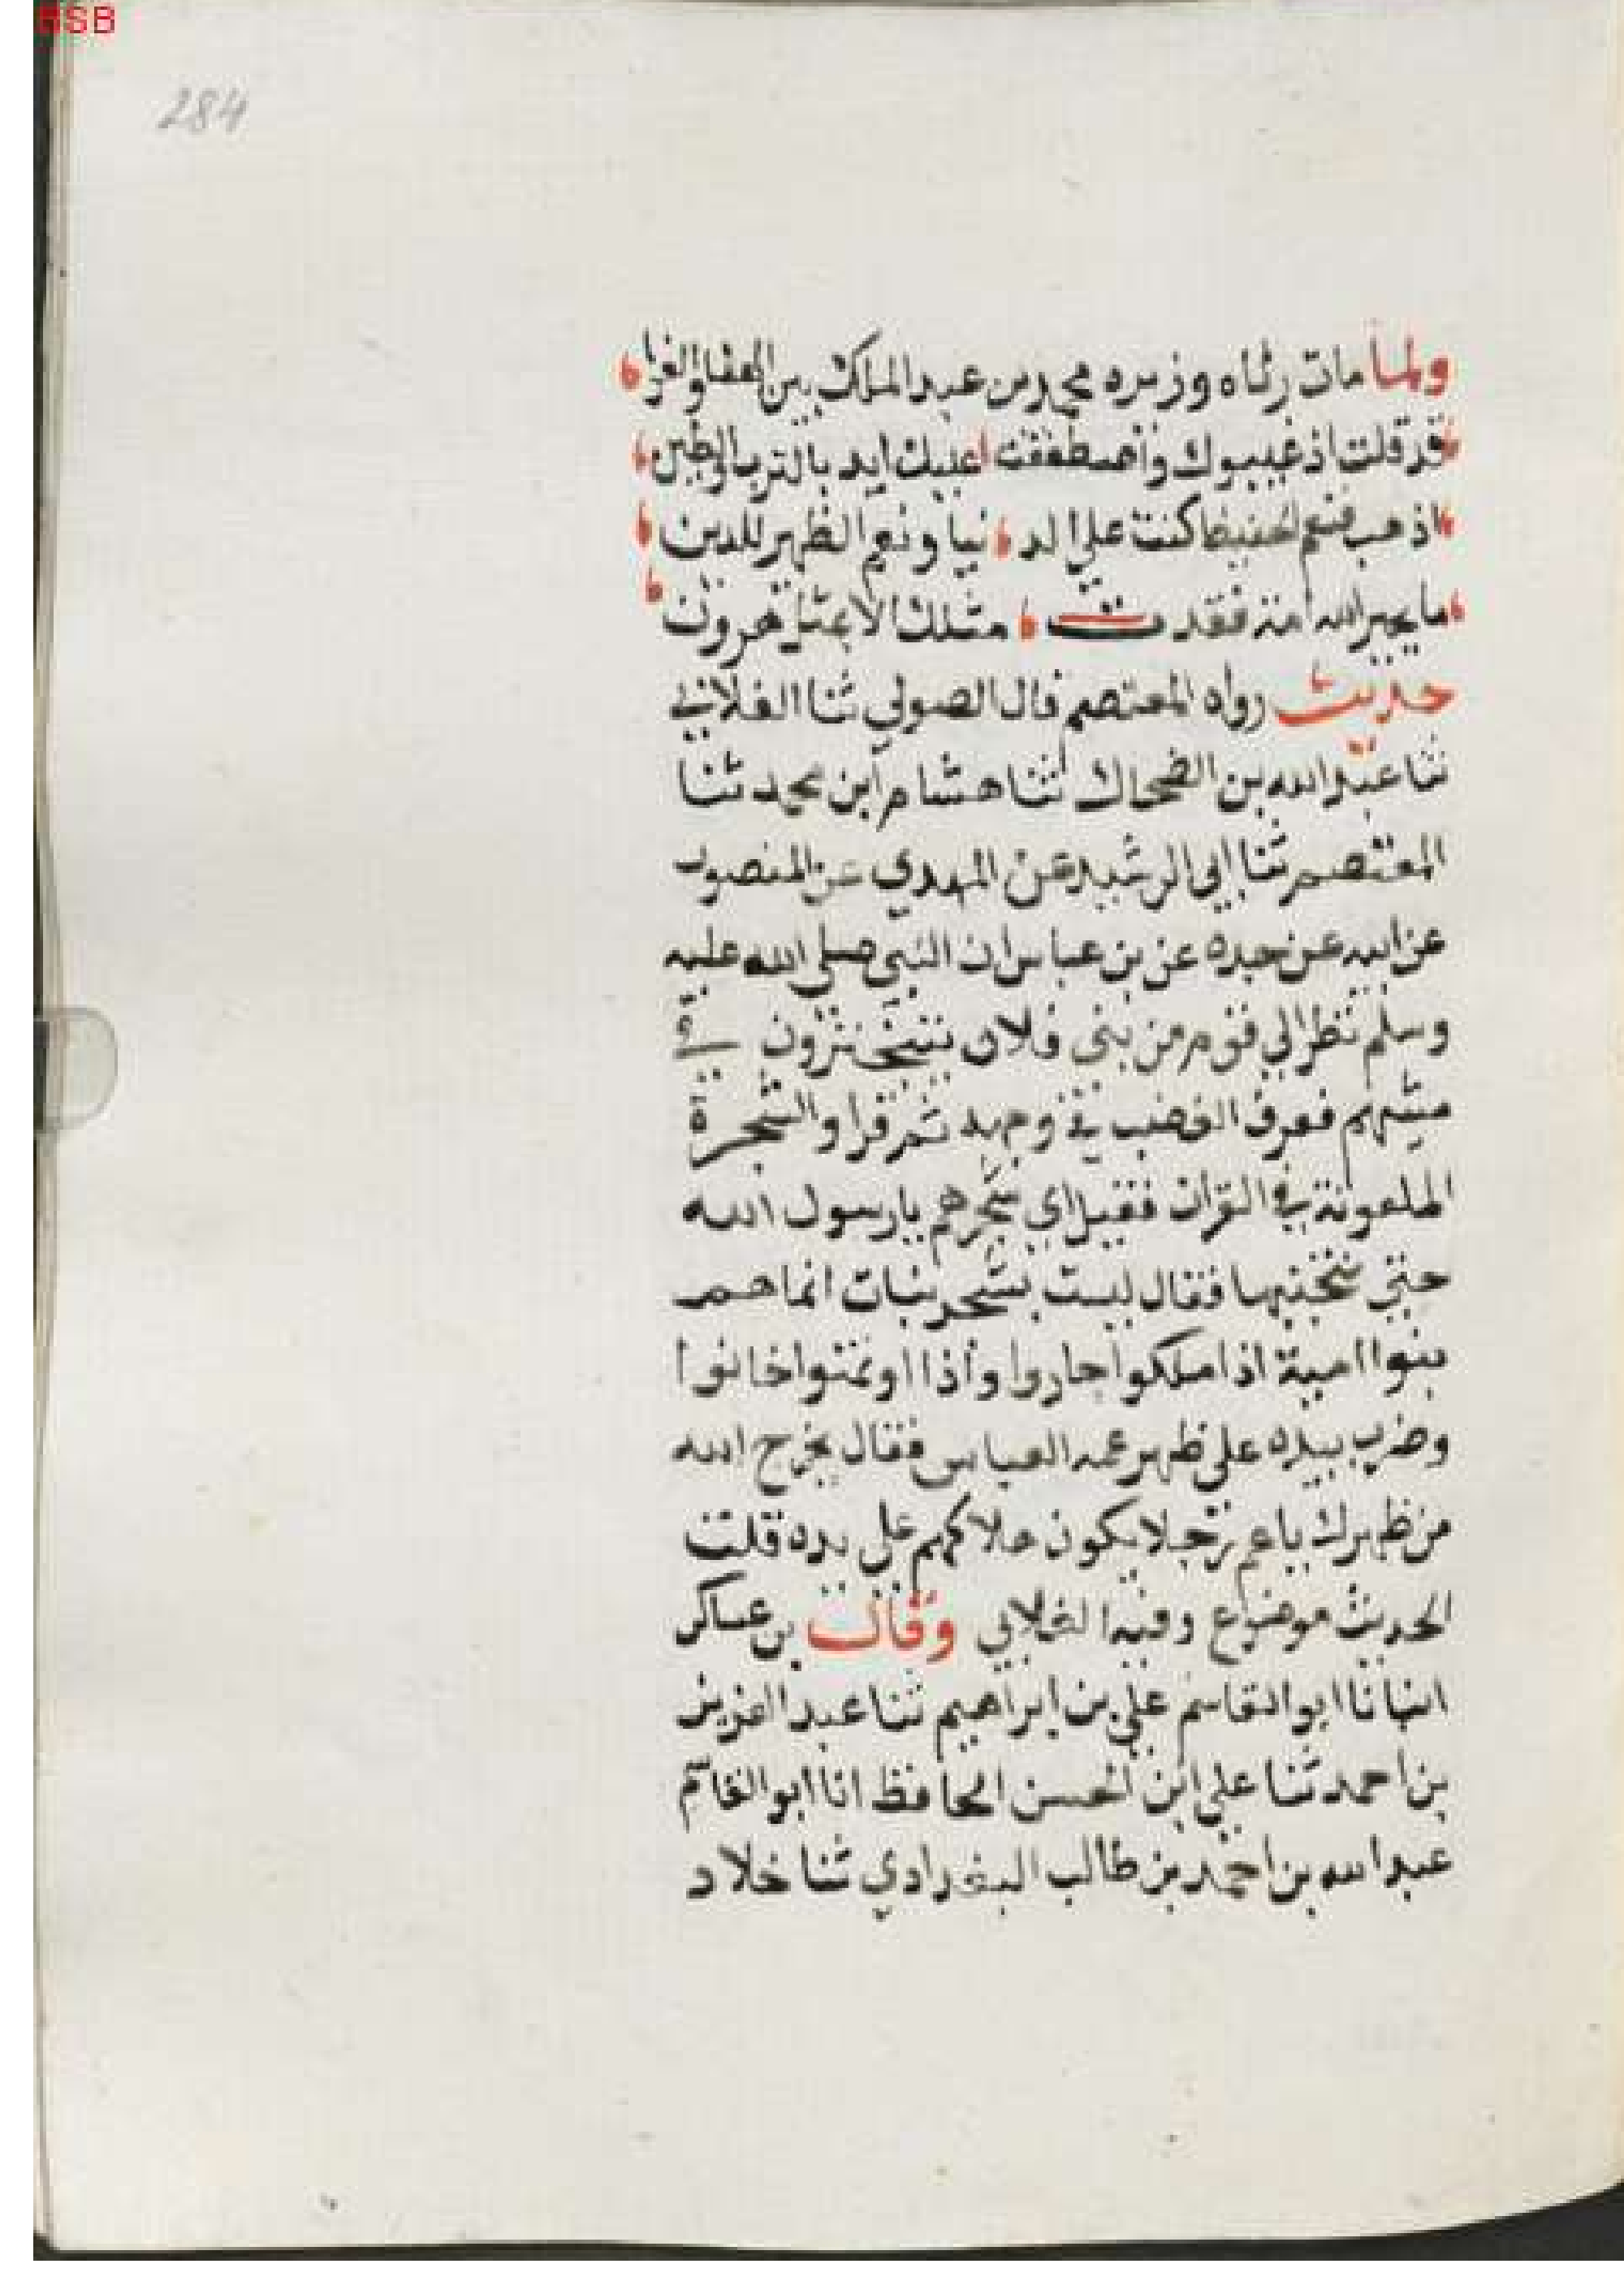 HSB
284
ولما مات رثاه وزيره محمد بن عبد الملك بين الهنا والعزا
قد قلت اذ غيبوك واصطفقت عليك ايد بالترب والطين
اذهب فنعم الحفيظ كنت علي الد نيا ونعم الظهير للدين
ما يجبر الله امة فقدت مثلك الا بمثل هرون
حديث رواه المعتصم قال الصولي ثنا الغلابي
ثنا عبد الله بن الضحاك ثنا هشام ابن محمد ثنا
المعتصم ثنا ابي الرشيد عن المهدي عن المنصور
عن ابيه عن جده عن بن عباس ان النبي صلي الله عليه
وسلم نظر الي قوم من بني فلان يتبخترون في
مشيهم فعرف الغضب في وجهه ثم قرا والشجرة
الملعونة في القران فقيل اي شجر هم يارسول الله
حتي نجتنبها فقال ليست بشجر نبات انما هم
بنوا امية اذا ملكوا جاروا واذا اوتمنوا خانوا
وضرب بيده علي ظهر عمه العباس فقال يخرج الله
من ظهرك ياعم رجلا يكون هلاكهم علي يده قلت
الحديث موضوع وفيه الغلابي وقال بن عساكر
انبانا ابو القاسم علي بن ابراهيم ثنا عبد العزيز
بن احمد ثنا علي ابن الحسن الحافظ انا ابو القاسم
عبد الله بن احمد بن طالب البغدادي ثنا خلاد